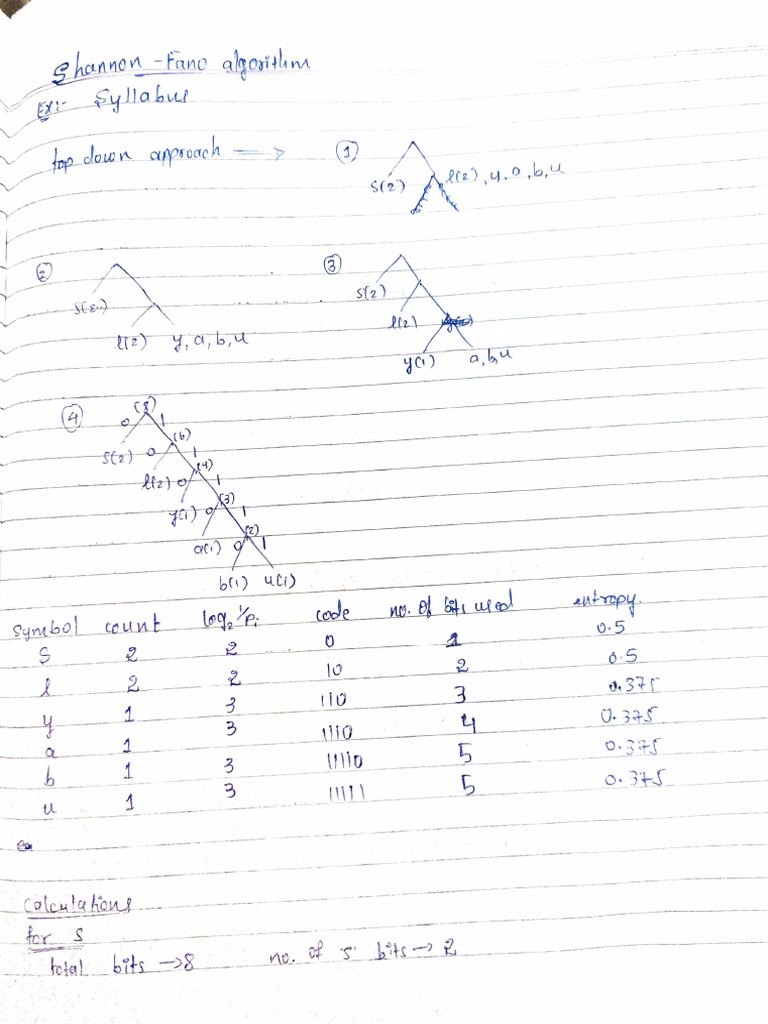 Shannon-Fano algorithm
Ex:- Syllabus
top down approach ⟹ ①
S(2) l(2), y, a, b, u
② ③
l(2) y, a, b, u
S(2)
l(2)
y(1) a, b, u
④
(8)
0 1
(6)
S(2) 0 1
(4)
l(2) 0 1
(3)
y(1) 0 1
(2)
a(1) 0 1
b(1) u(1)
Symbol count log₂ 1/Pi code no. of bits used entropy.
S 2 2 0 1 0.5
l 2 2 10 2 0.5
y 1 3 110 3 0.375
a 1 3 1110 4 0.375
b 1 3 11110 5 0.375
u 1 3 11111 5 0.375
Calculations
for S
total bits → 8 no. of 's' bits → 2